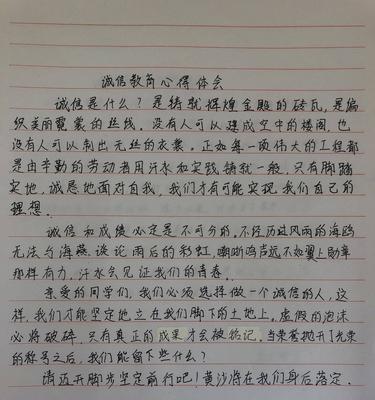 诚信教育心得体会
诚信是什么？是铸就辉煌金殿的砖瓦，是编
织美丽霓裳的丝线。没有人可以建成空中的楼阁，也
没有人可以制出无丝的衣裳。正如每一项伟大的工程都
是由辛勤的劳动者用汗水和实践铸就一般，只有脚踏
实地，诚恳地面对自我，我们才有可能实现我们自己的
理想。
诚信和成绩必定是不可分的，不经历过风雨的海鸥
无法与海燕谈论雨后的彩虹，嘶鸣声远不如翼上勋章
那样有力，汗水会见证我们的青春。
亲爱的同学们，我们必须选择做一个诚信的人，这
样，我们才能坚定地立在我们脚下的土地上，虚假的泡沫
必将破碎，只有真正的成果才会被铭记，当荣誉抛开了光荣
的称号之后，我们能留下些什么？
请迈开脚步坚定前行吧！黄沙将在我们身后落定。